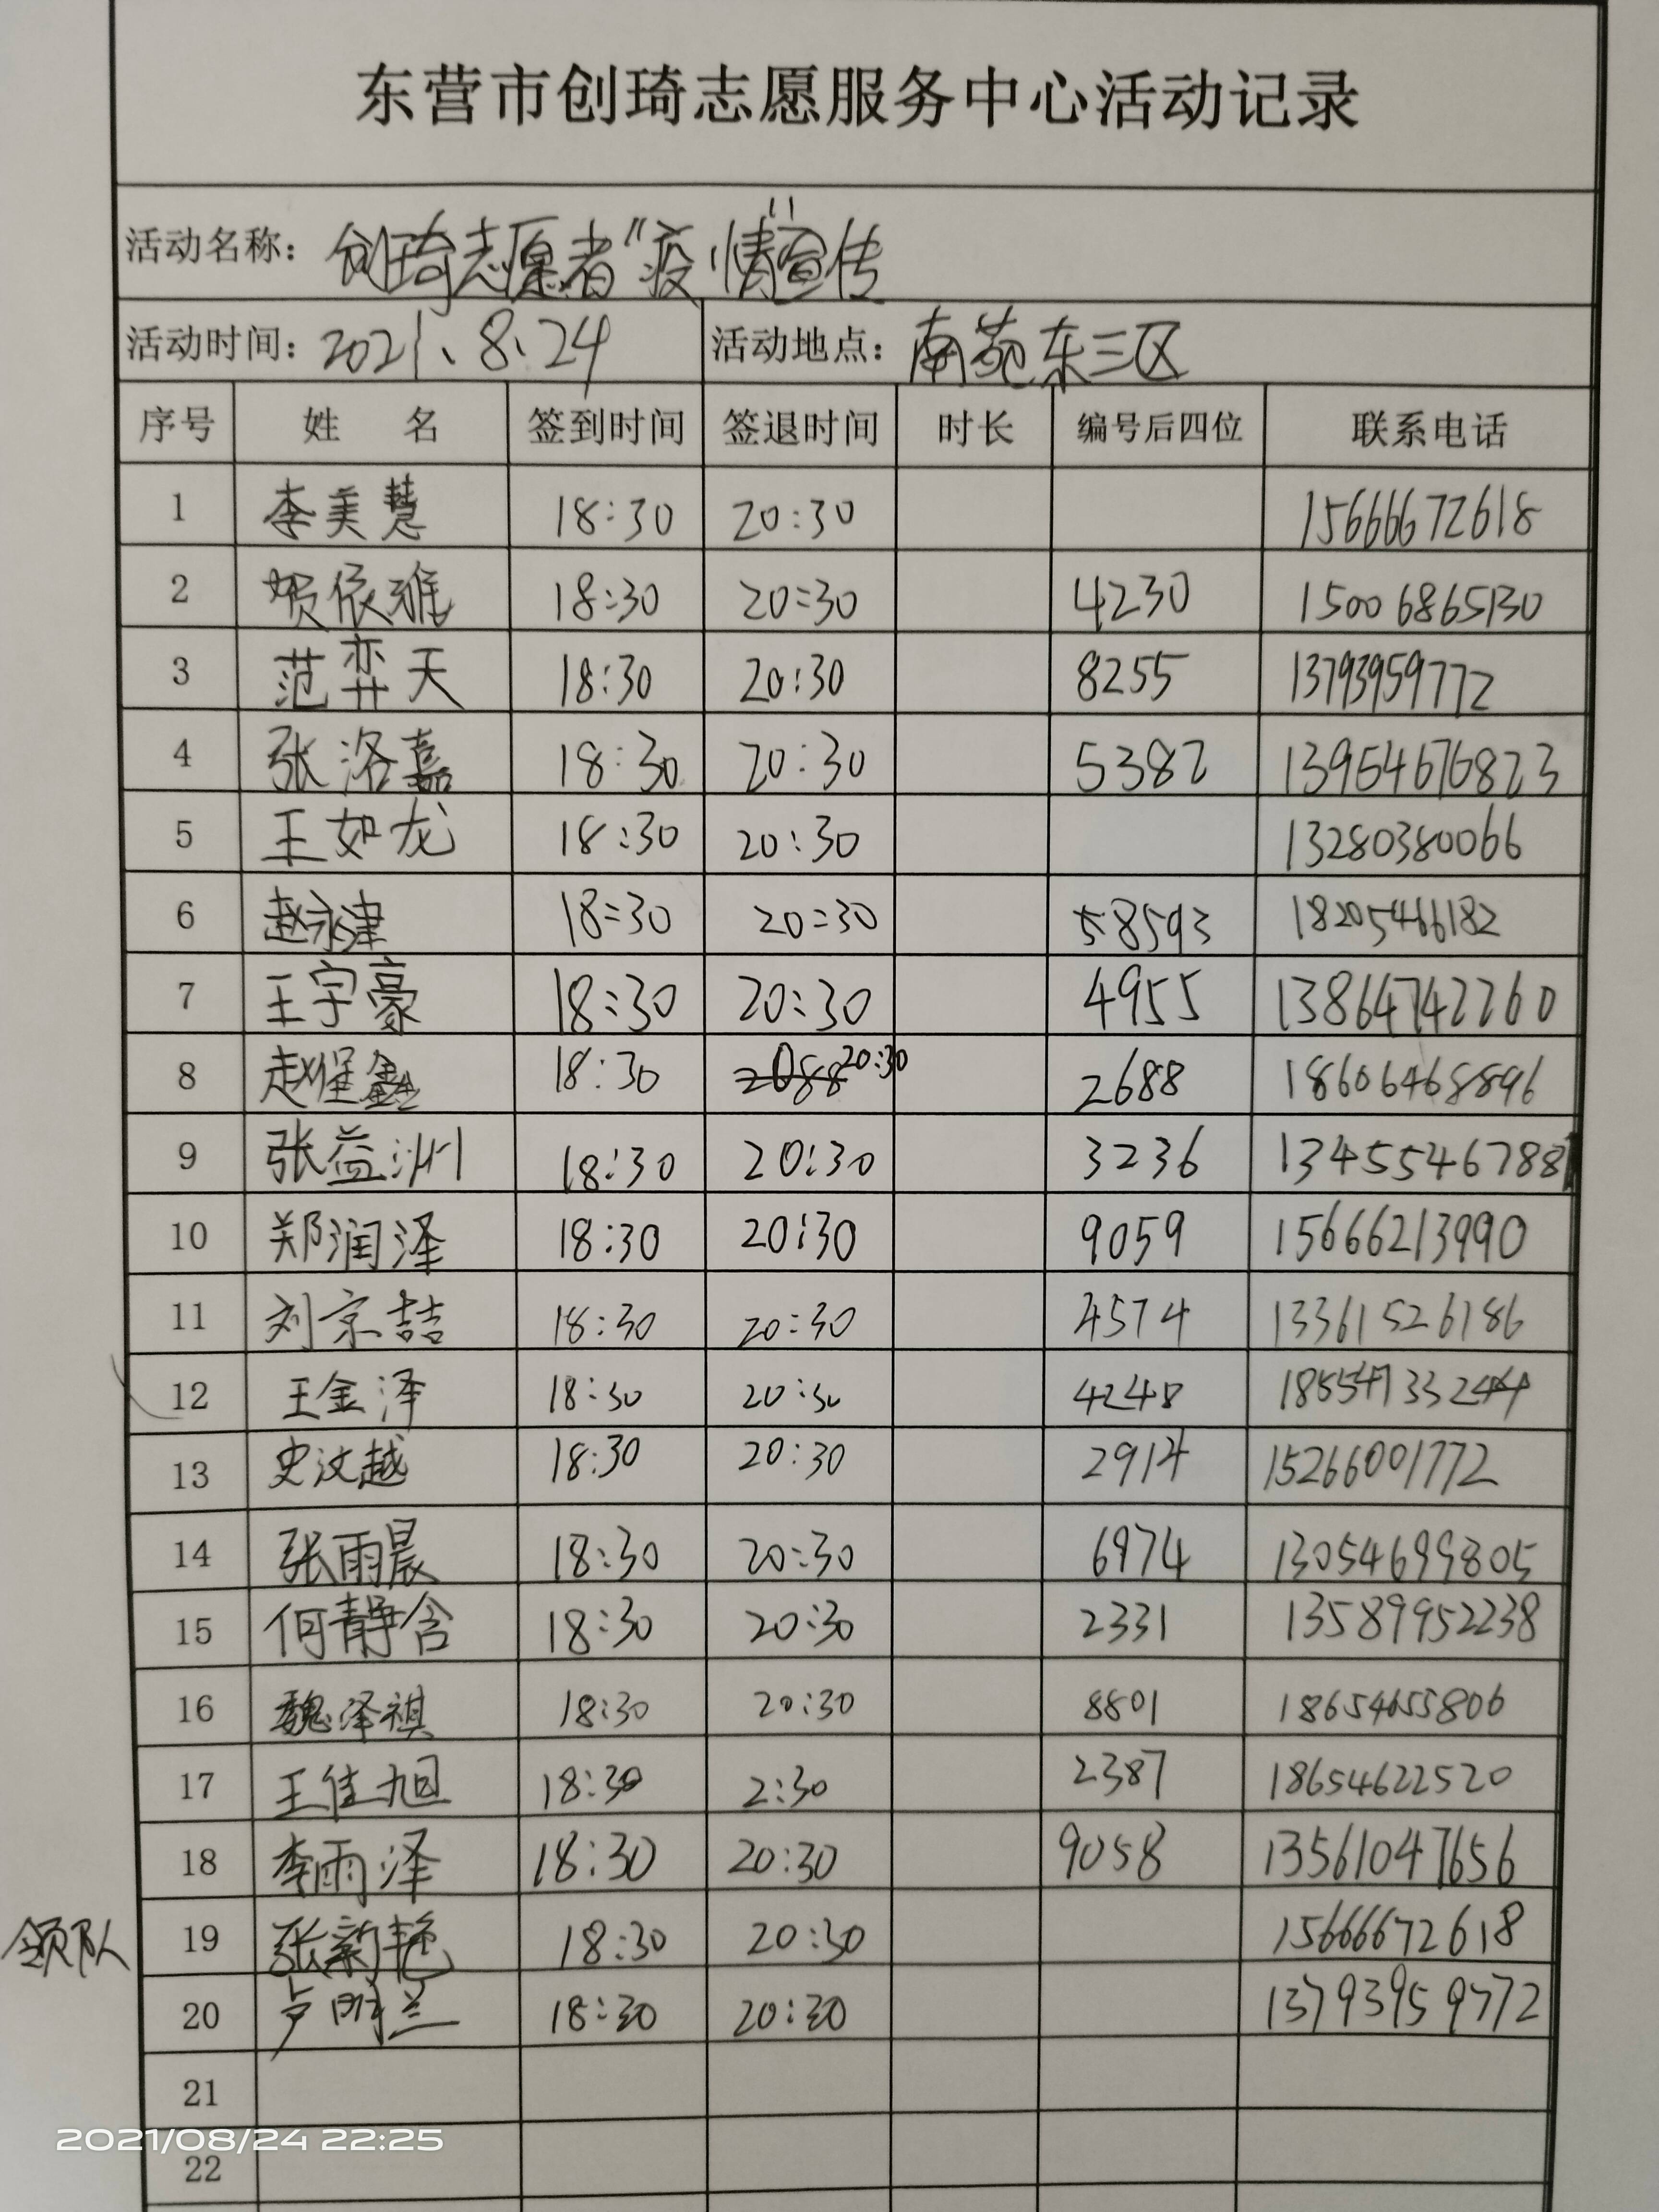 东营市创琦志愿服务中心活动记录
活动名称：创琦志愿者“疫情”宣传
活动时间：2021、8、24 活动地点：南苑东三区
序号 姓 名 签到时间 签退时间 时长 编号后四位 联系电话
1 李美慧 18:30 20:30 15666672618
2 贺依雅 18:30 20:30 4230 15006865130
3 范弈天 18:30 20:30 8255 13793959772
4 张洛嘉 18:30 20:30 5382 13954676823
5 王如龙 18:30 20:30 13280380066
6 赵永津 18:30 20:30 8593 18205466182
7 王宇豪 18:30 20:30 4955 13864742260
8 赵 鑫 18:30 20:30 2688 18606468896
9 张益州 18:30 20:30 3236 13455467881
10 郑润泽 18:30 20:30 9059 15666213990
11 刘京喆 18:30 20:30 4574 13361526186
12 王金泽 18:30 20:30 4248
13 史汶越 18:30 20:30 2914 15266001772
14 张雨晨 18:30 20:30 6974 13054699805
15 何静含 18:30 20:30 2331 13589952238
16 魏泽祺 18:30 20:30 8801 18654655806
17 王佳旭 18:30 2:30 2387 18654622520
18 李雨泽 18:30 20:30 9058 13561047656
领队 19 张新艳 18:30 20:30 15666672618
20 卢明兰 18:30 20:30 13793959772
21
22
2021/08/24 22:25